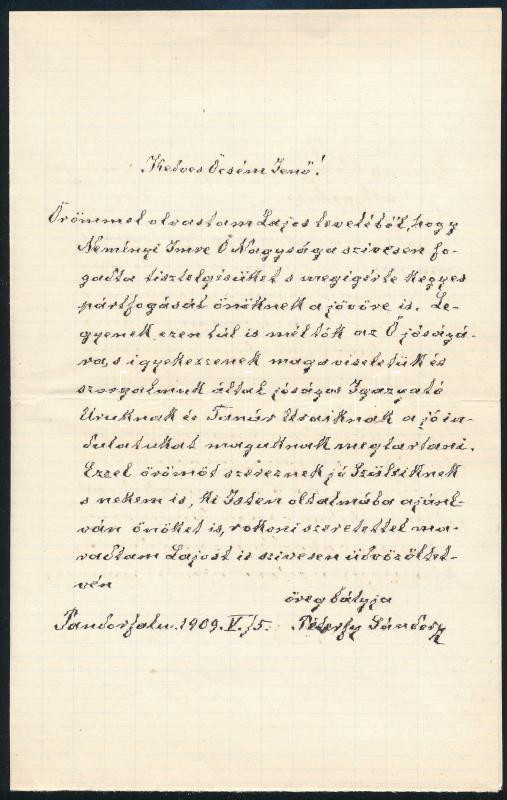 Kedves Öcsém Jenő!
Örömmel olvastam Lajos leveléből, hogy
Neményi Imre Ő Nagysága szivesen fo-
gadta tisztelgésüket s megigérte kegyes
pártfogását önöknek a jövőre is. Le-
gyenek ezen túl is méltók az Ő jóságá-
ra, s igyekezzenek magaviseletük és
szorgalmuk által jóságos Igazgató
Uruknak és Tanár Uraiknak a jóin-
dulatukat maguknak megtartani.
Ezzel örömöt szereznek jó Szülőiknek
s nekem is, ki Isten oltalmába ajánl-
ván önöket is, rokoni szeretettel ma-
radtam Lajost is szivesen üdvözöltet-
vén
öreg bátyja
Pándorfalu. 1909. V./5. Péterfy Sándor